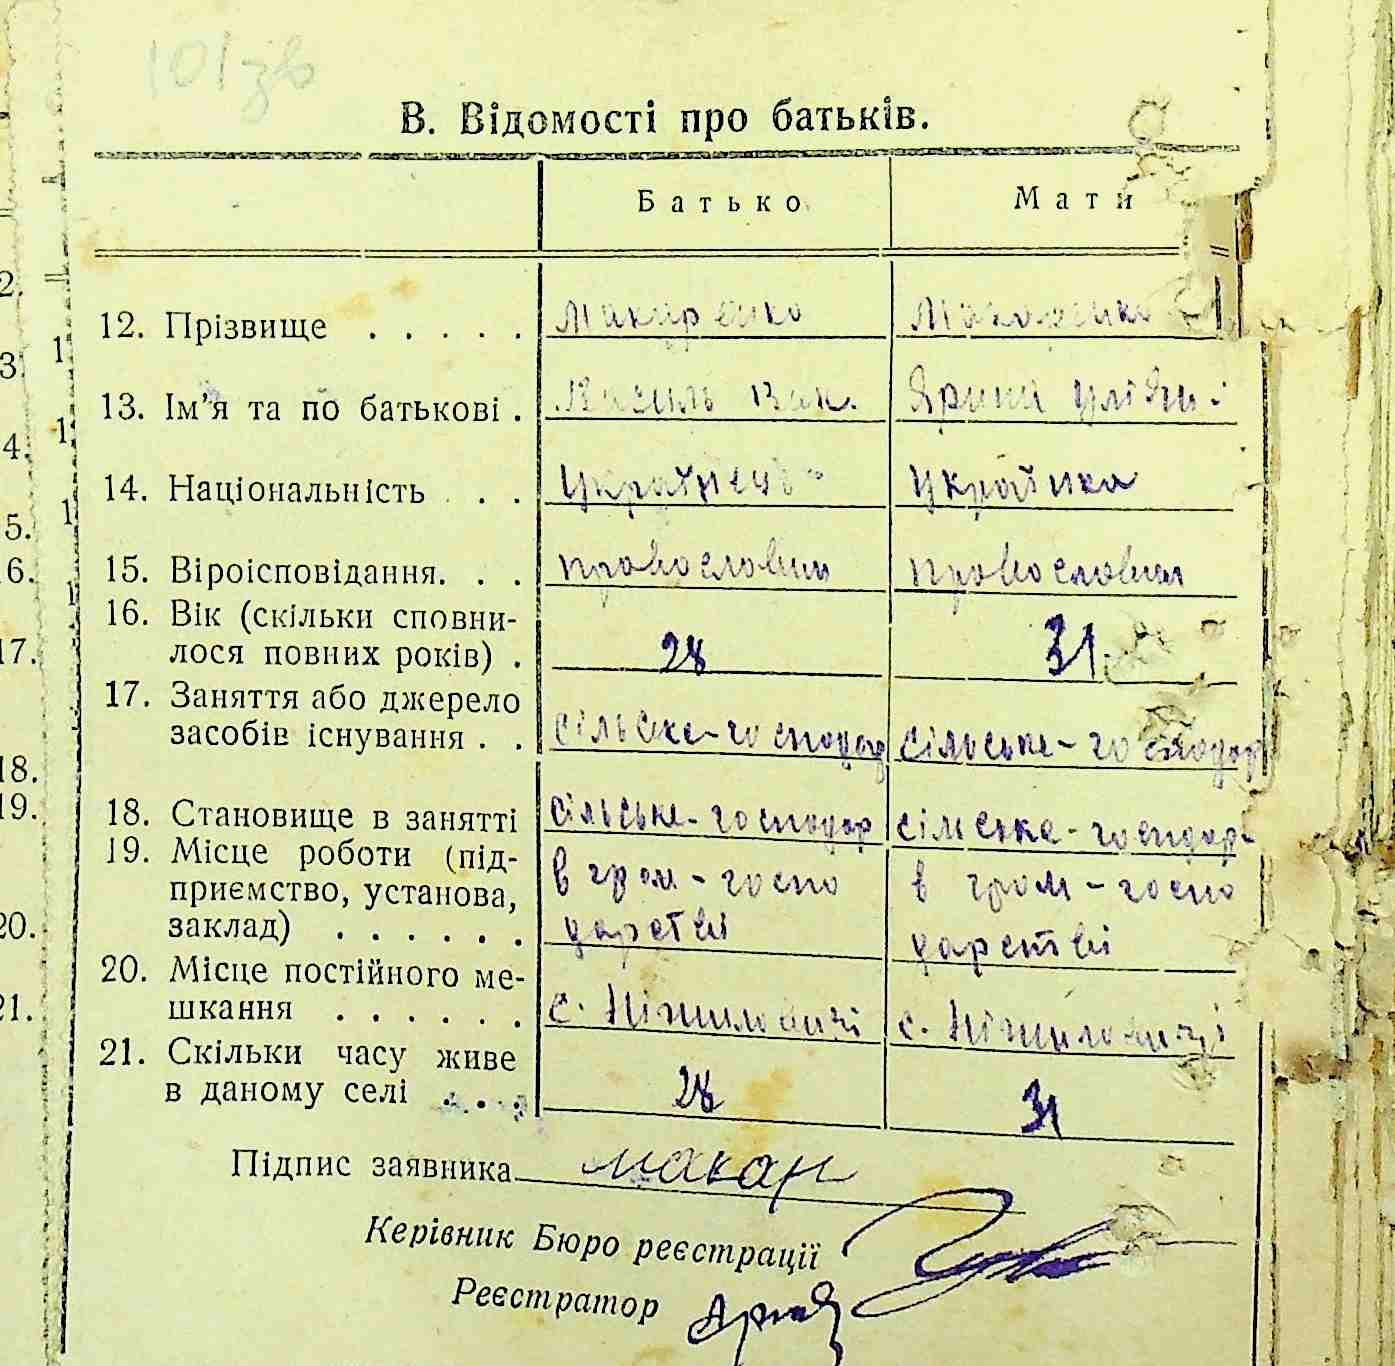 101зв
В. Відомості про батьків.
Батько Мати
12. Прізвище . . . . . Макаренко
13. Ім'я та по батькові . Василь Вак. Ярина Улян.
14. Національність . . . Українець Українка
15. Віроісповідання. . . провославни провославна
16. Вік (скільки сповни-
лося повних років) . 28 31
17. Заняття або джерело
засобів існування . . сільське-господар сільське-господар
18. Становище в занятті сільське-господар сільске-господар-
19. Місце роботи (під- в гром-госпо в гром-госпо
приємство, установа,
заклад) . . . . . . дарстві дарстві
20. Місце постійного ме-
шкання . . . . . . с. Ніжиловичі с. Ніжиловичі
21. Скільки часу живе
в даному селі . . . . 28 31
Підпис заявника Макар
Керівник Бюро реєстрації
Реєстратор